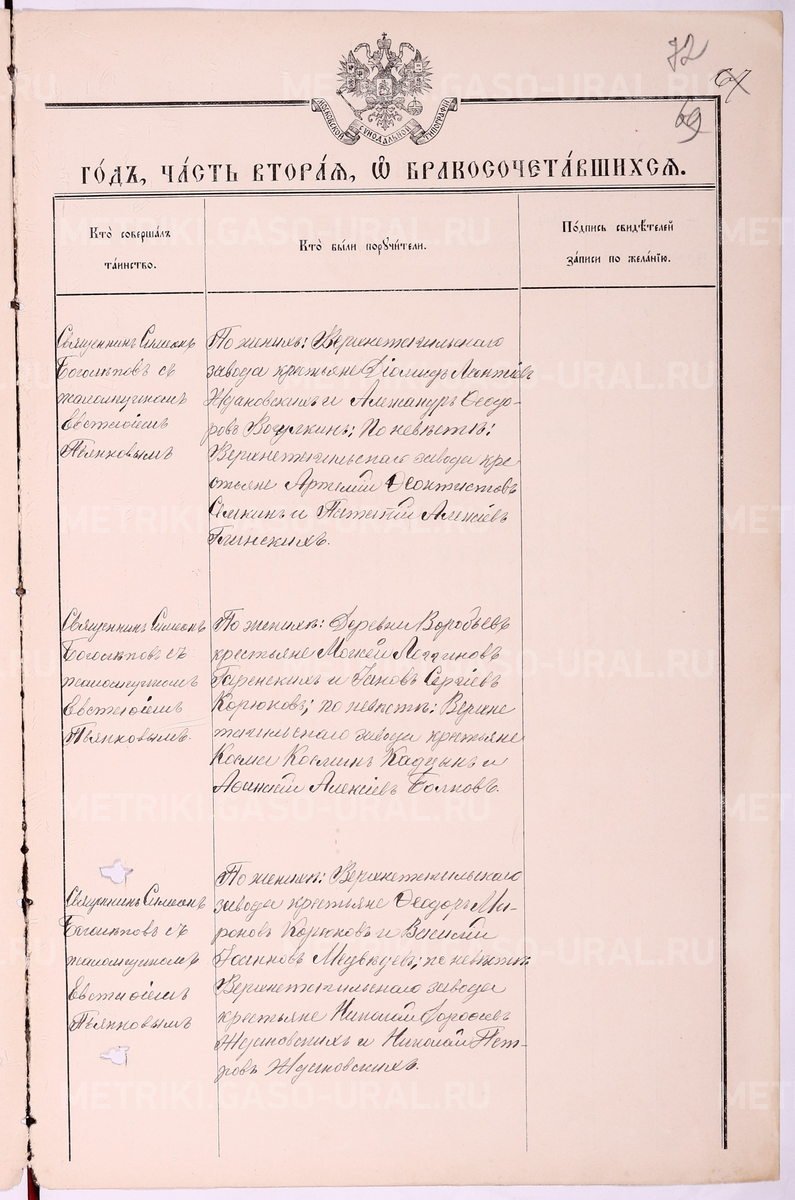 72
67
69
МОСКОВСКОЙ СѴНОДАЛЬНОЙ ТИПОГРАФІИ
ГО́ДЪ, ЧА́СТЬ ВТОРА́Ѧ, Ѽ БРАКОСОЧЕТА́ВШИХСѦ.
Кто̀ совершалъ
та́инство.
Кто̀ бы́ли порꙋчи́тели.
По́дпись свидѣ́телей
за́писи по жела́нїю.
Священникъ Симеонъ
Боголѣповъ съ
псаломщикомъ
Евстюгіемъ
Пьянковымъ
По женихѣ: Верхнетагильскаго
завода крестьяне Діомидъ Леонтіевъ
Ждановскихъ и Александръ Ѳеодо-
ровъ Вогулкинъ; По невѣстѣ:
Верхнетагильскаго завода кре
стьяне Артемій Ѳеоктистовъ
Сѣмкинъ и Алексіевъ
Глинскихъ.
Священникъ Симеонъ
Боголѣповъ съ
псаломщикомъ
Пьянковымъ.
По женихѣ: Деревни Воробьевъ
крестьяне Мокей Логгиновъ
Гаренскихъ и Іаковъ Сергіевъ
Корюковъ; по невѣстѣ: Верхне
тагильскаго завода крестьяне
Косма Косминъ Кадцынъ и
Алексіевъ Балковъ.
Священникъ Симеонъ
Боголѣповъ съ
псаломщикомъ
Пьянковымъ
По женихѣ: Верхнетагильскаго
завода крестьяне Ѳеодоръ Ми-
роновъ Корюковъ и Василій
Іоанновъ Медвѣдевъ; по невѣстѣ:
Верхнетагильскаго завода
крестьяне Николай Дорофеевъ
Ждановскихъ и Николай Пет-
ровъ Ждановскихъ.
METRIKI.GASO-URAL.RU